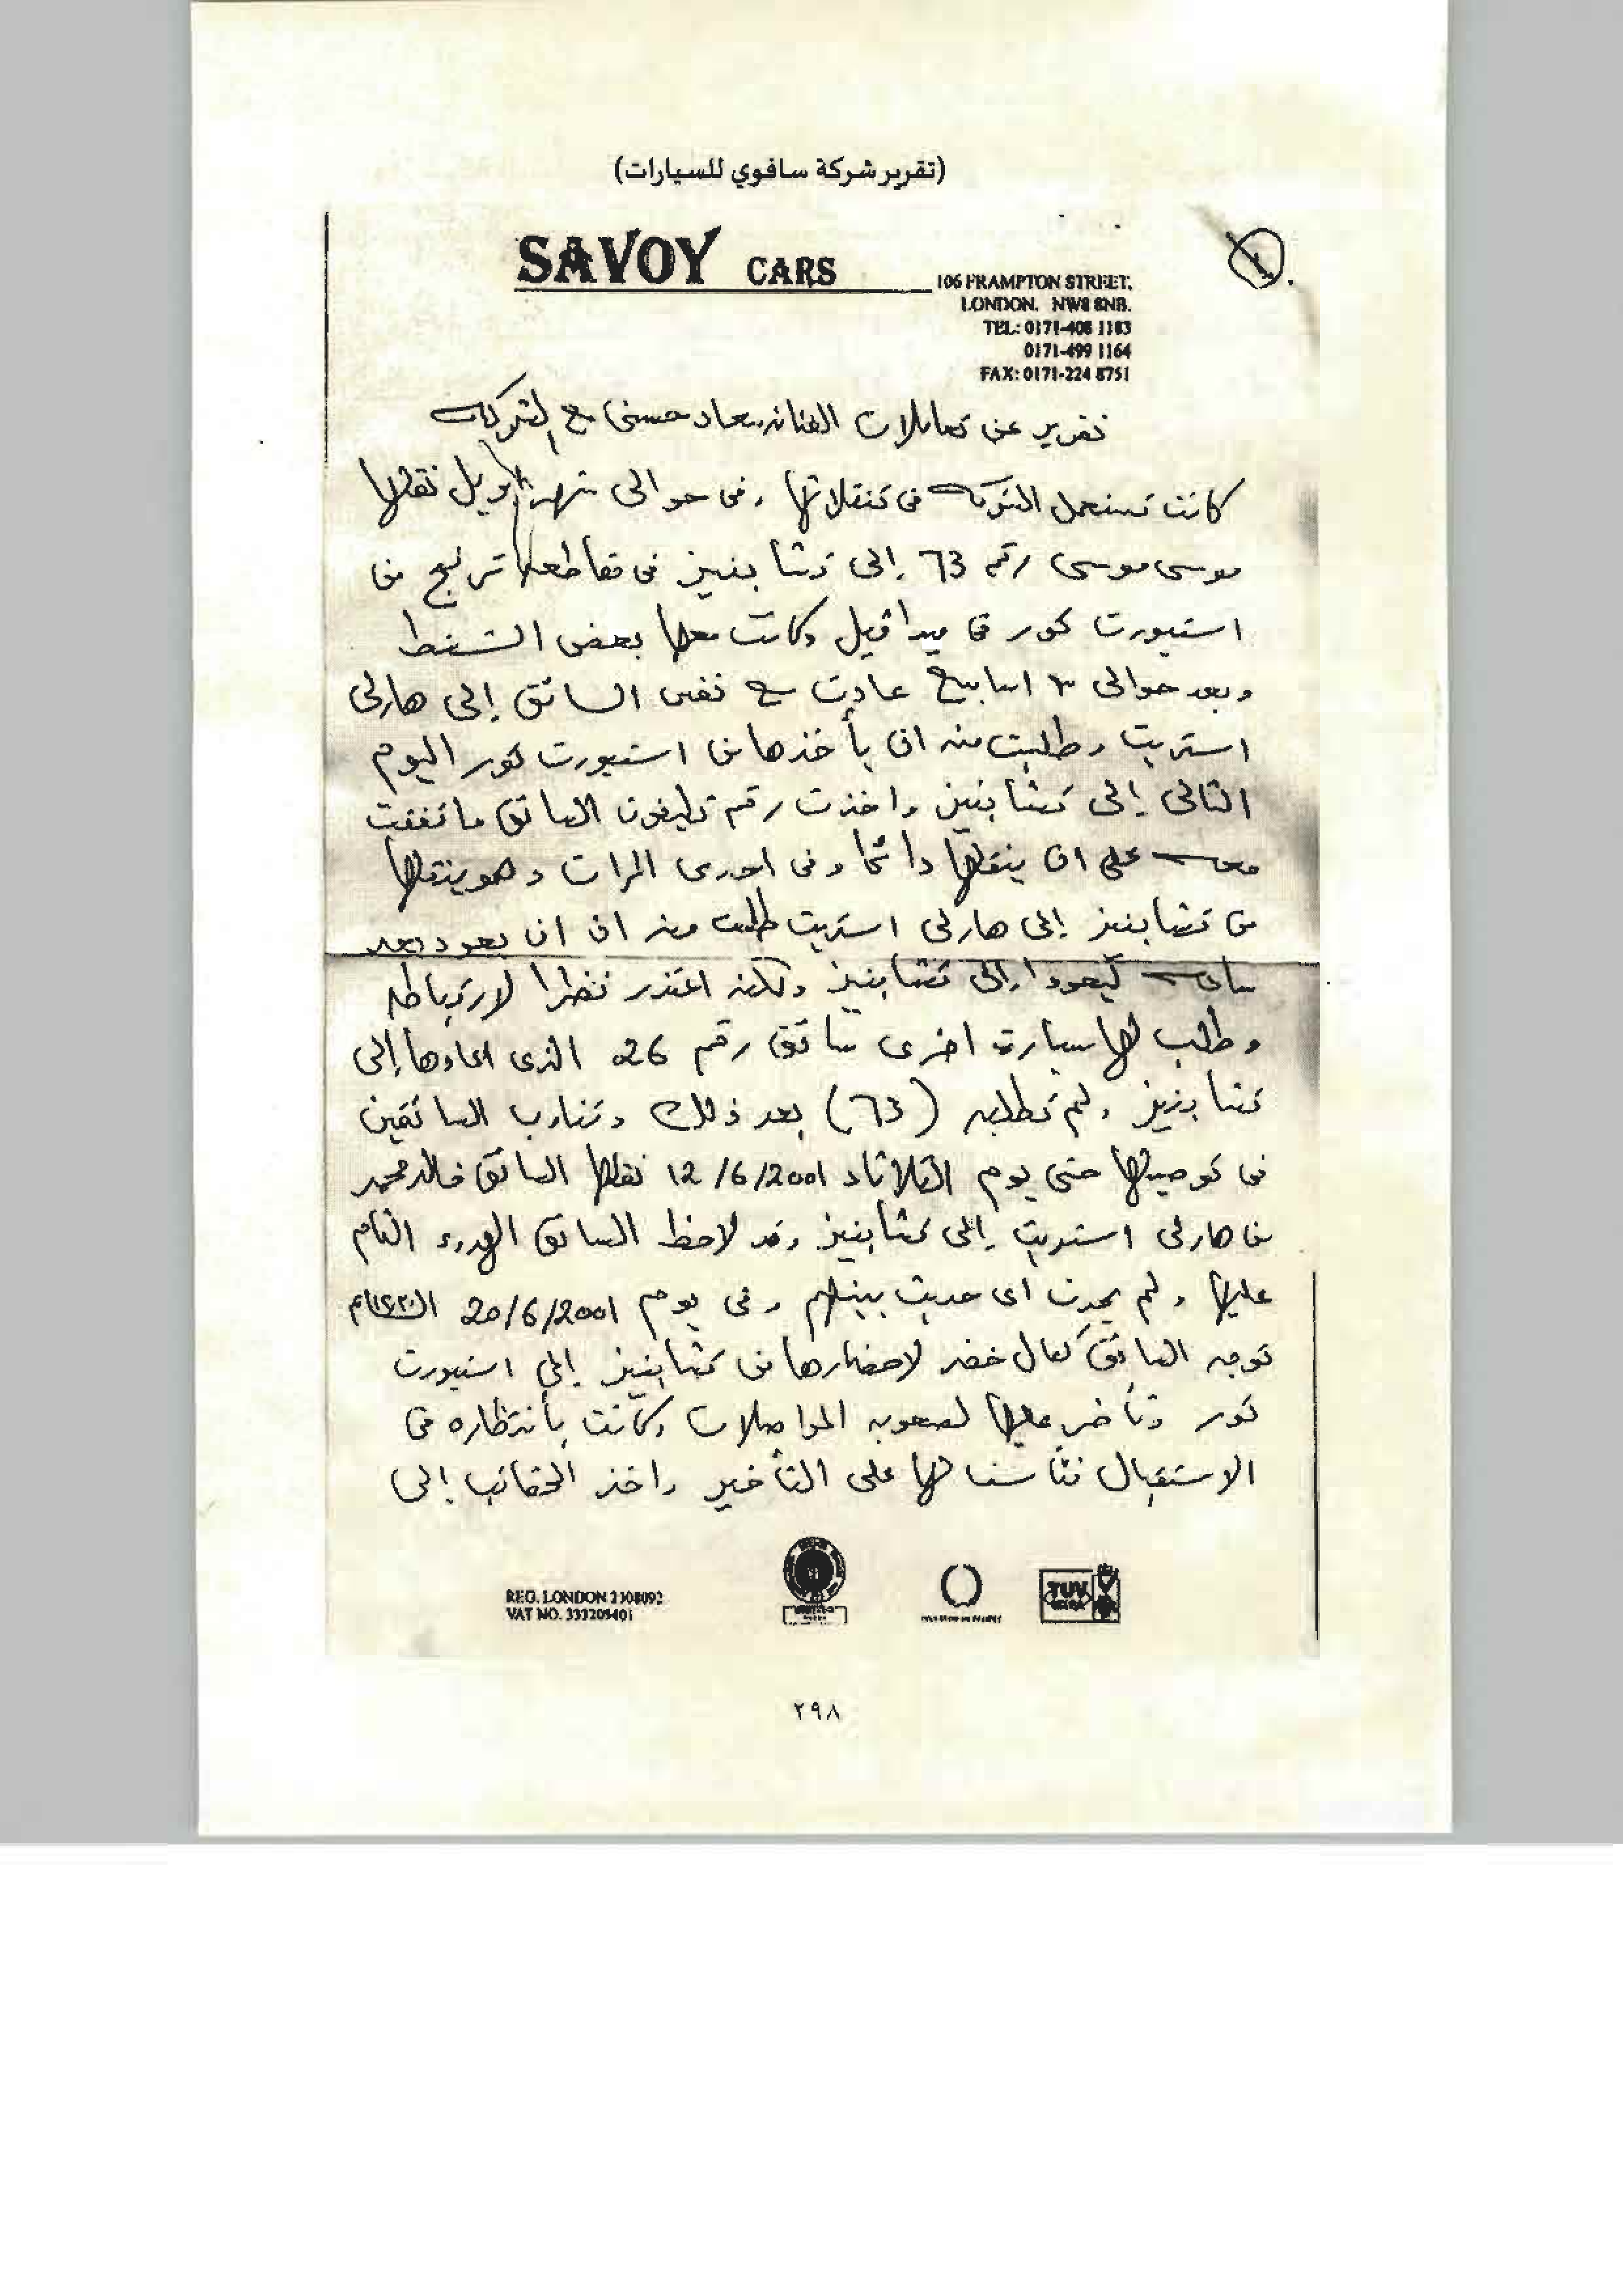 (تقرير شركة سافوي للسيارات)
SAVOY CARS
106 FRAMPTON STREET,
LONDON. NW8 8NB.
TEL: 0171-408 1183
0171-499 1164
FAX: 0171-224 8751
تقرير عن تعاملات الفنانه سعاد حسنى مع الشركه
كانت تستعمل الشركه فى تنقلاتها وفى حوالى شهر ابريل نقلها
موسى موسى رقم 63 إلى تشابنيز فى مقاطعه من
استيورت كور فى ميدافيل وكانت معها بعض الشنط
وبعد حوالى ٣ اسابيع عادت مع نفس السائق إلى هارلى
استريت وطلبت منه ان يأخذها من استيورت كور اليوم
التالى إلى تشابنيز واخذت رقم تليفون السائق فاتفقت
معه على ان ينقلها دائما وفى احدى المرات وهو ينقلها
من تشابنيز إلى هارلى استريت طلبت منه ان ان يعود بعد
ليعودا إلى تشابنيز ولكنه اعتذر نظرا لارتباطه
وطلب لها سيارة اخرى سائق رقم 26 الذى اعادها إلى
تشابنيز ولم تطلبه (63) بعد ذلك وتناوب السائقين
فى توصيلها حتى يوم الثلاثاء 12/6/2001 نقلها السائق خالد محمد
من هارلى استريت إلى تشابنيز وقد لاحظ السائق الهدوء التام
عليها ولم يحدث اى حديث بينهم وفى يوم 20/6/2001
توجه السائق كمال خضر لاحضارها من تشابنيز إلى استيورت
كور وتأخر عليها لصعوبه المواصلات وكانت بأنتظاره فى
الاستقبال لها على التأخير واخذ الحقائب إلى
REG. LONDON 2308092
VAT NO. 333205401
TUV
٢٩٨